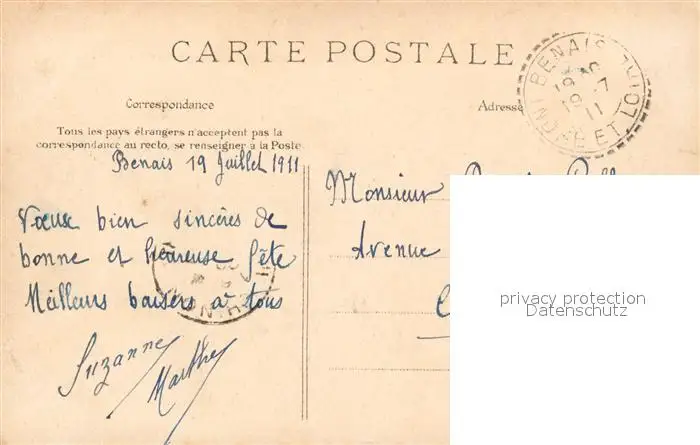 CARTE POSTALE
BENAIS
19 -7
11
INDRE ET LOIRE
Correspondance
Adresse
Tous les pays étrangers n'acceptent pas la
correspondance au recto, se renseigner à la Poste
Benais 19 Juillet 1911
Vœux bien sincères de
bonne et heureuse fête
Meilleurs baisers à tous
Suzanne
Marthe
Monsieur
Avenue
privacy protection
Datenschutz